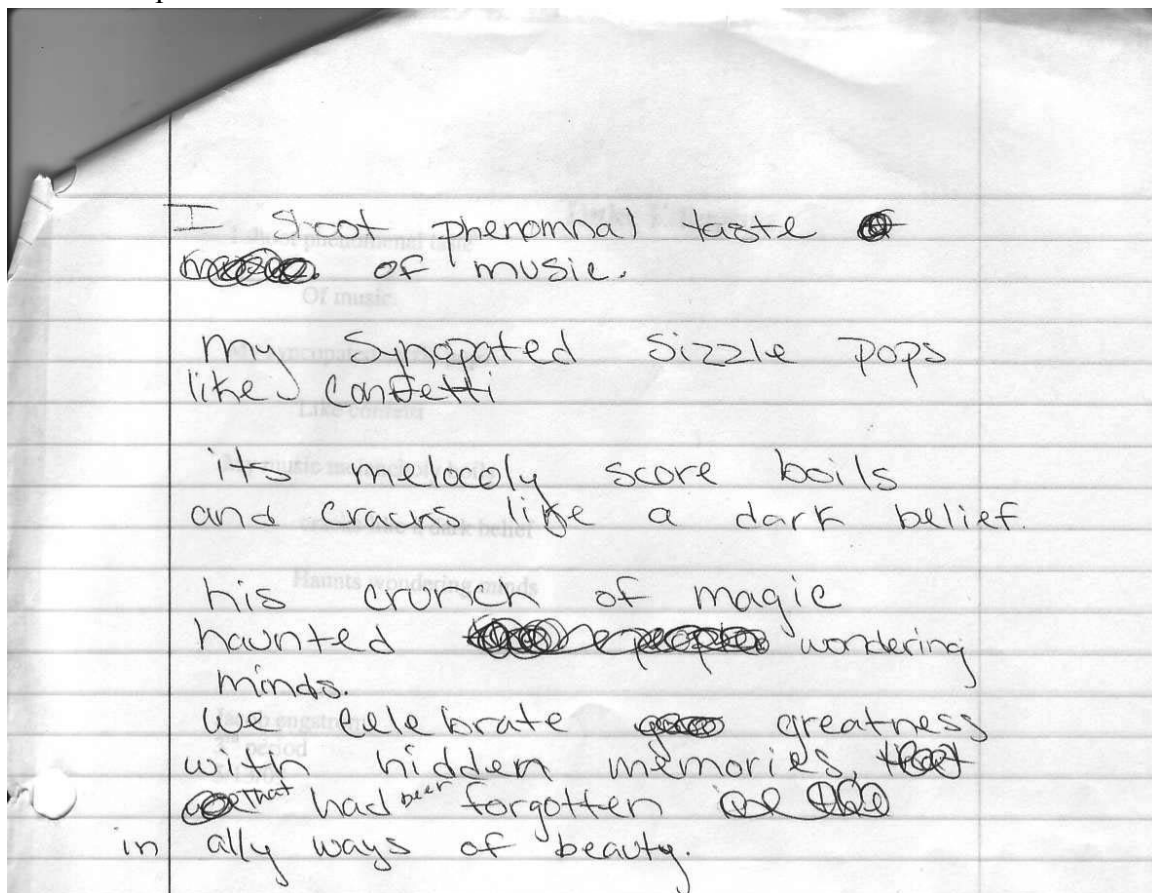 I shoot phenomnal taste
of music.
my Synopated sizzle pops
like confetti
its melocoly score boils
and cracks like a dark belief.
his crunch of magic
haunted wondering
minds.
we celebrate greatness
with hidden memories,
That had been forgotten
in ally ways of beauty.